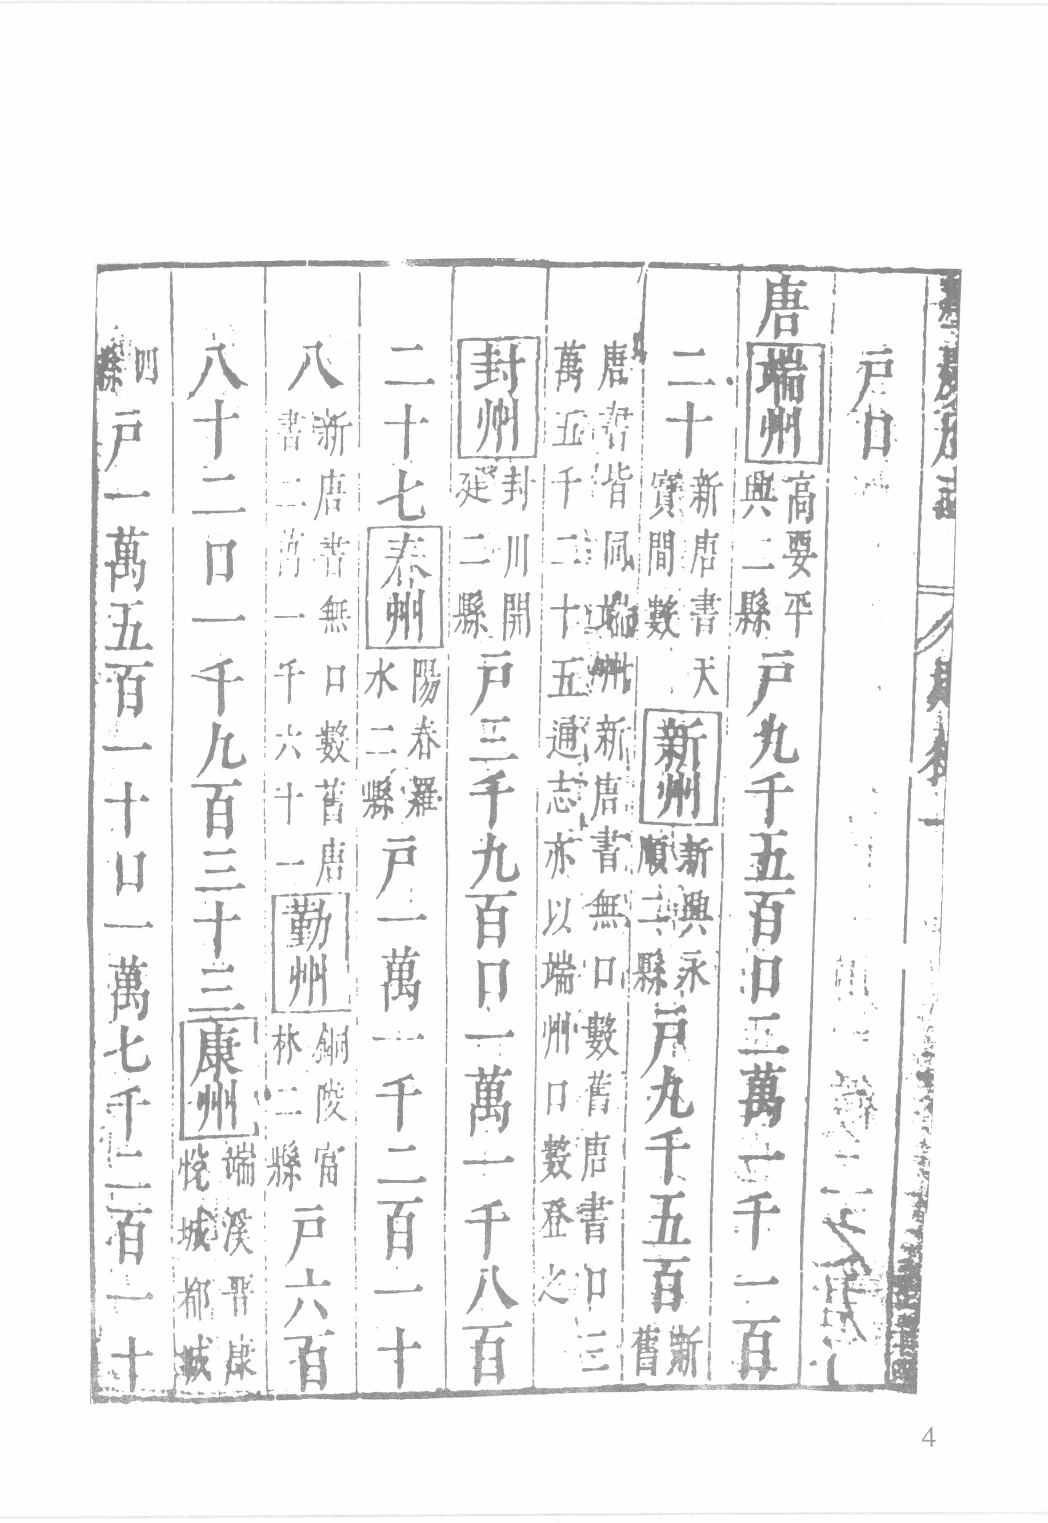 戶口
唐端州高要平興二縣戶九千五百口二萬一千一百
二十新唐書天寶間數新州新興永順二縣戶九千五百新舊
唐書皆同端州新唐書無口數舊唐書口三萬五千二十五通志亦以端州口數登之
封州封川開建二縣戶三千九百口一萬一千八百
二十七春州陽春羅水二縣戶一萬一千二百一十
八新唐書無口數舊唐書二萬一千六十一勤州銅陵富林二縣戶六百
八十二口一千九百三十三康州端溪晉康悅城都城
四縣戶一萬五百一十口一萬七千二百一十
4